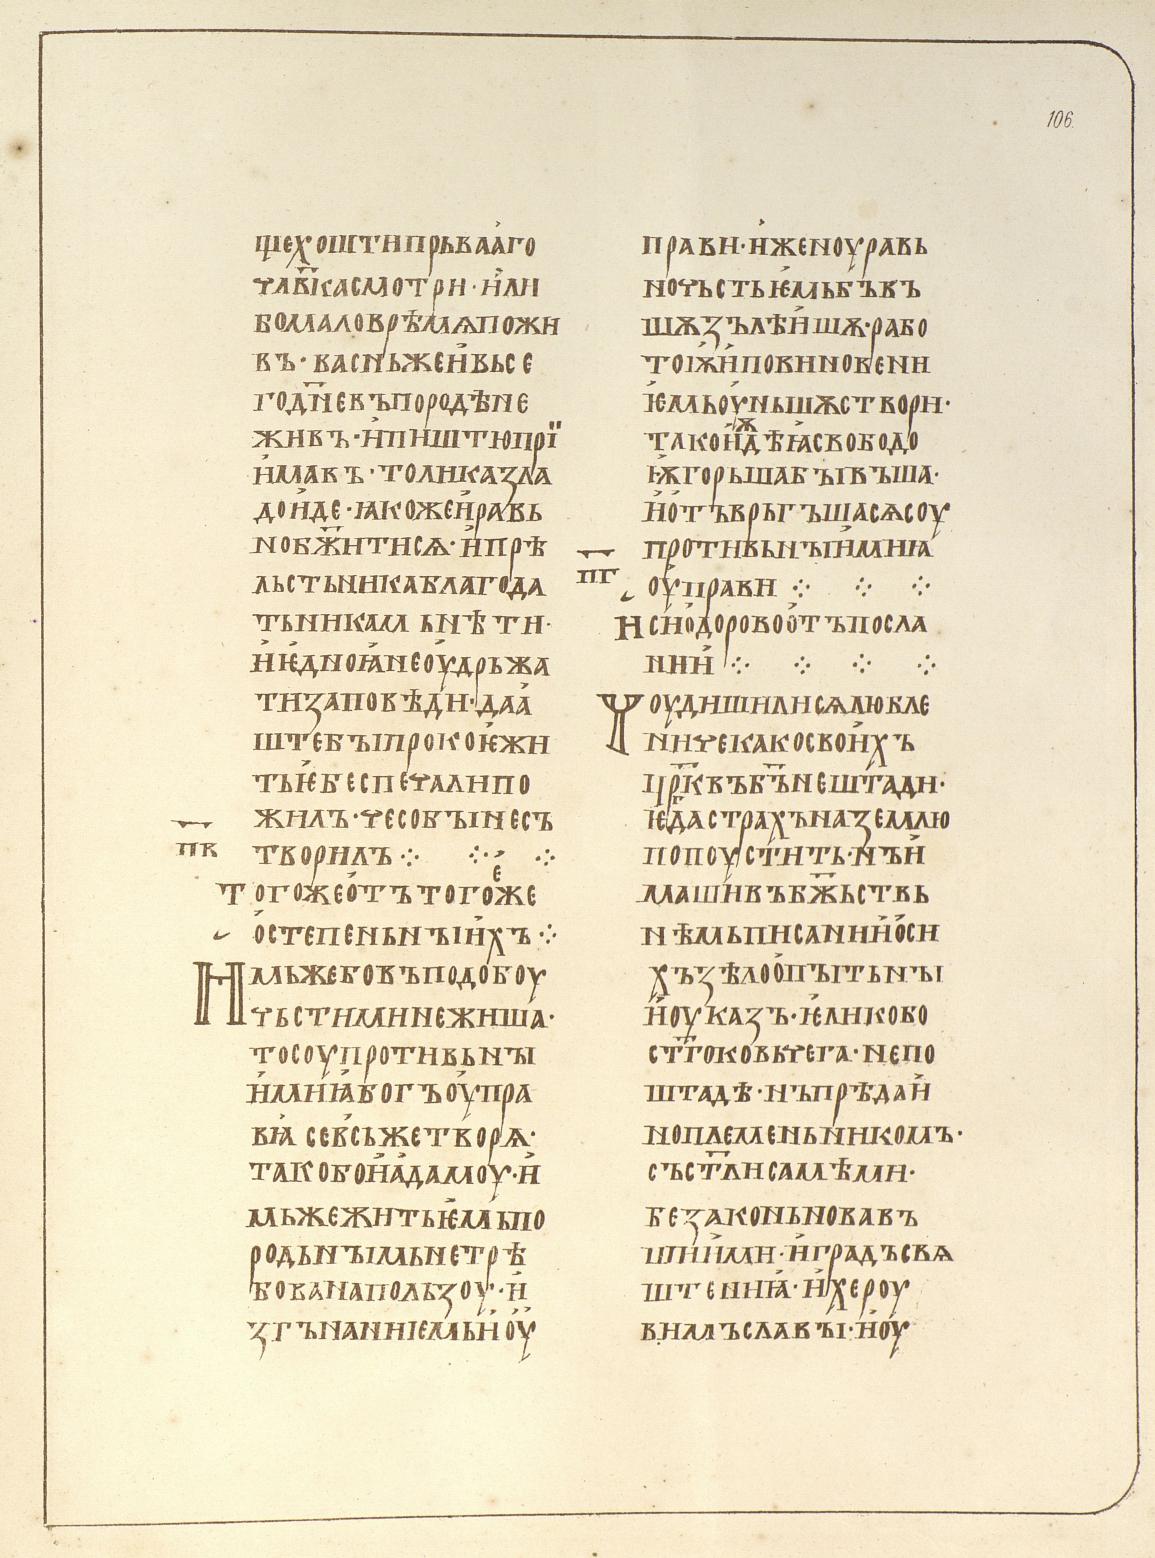 106.
ще хошти прьвааго
чл҃вка смотри · и҆ли
бо мало врѣмѧ пожи
въ · васнь же и҆ вьсе
год҃не въ породѣ не
живъ · и҆ пиштю прї
и҆мавъ · толика зла
доиде · ꙗко же и҆ равь
но б҃жити сѧ · и҆ прѣ
льстьника благода
тьникам ьнѣти ·
и҆ ѥдиноꙗ не оудрьжа
ти заповѣди · да а
ште бы прокоѥ жи
тьѥ беспечали по
жилъ · чесо бы не съ
творилъ ⁘ ⁘ ⁘
п҃в
Того же отъ того же
о степеньныихъ ⁘
Имьже бо въ подобоу
чьстими нежиша ·
то соупротивьны
и҆мниꙗ богъ оупра
виꙗ себѣ сь же творѧ ·
тако бо и҆ адамоу · и҆
мьже житьѥмь по
родьнъимь не трѣ
бова на пользоу · и҆
згънаниѥмь и҆ оу
прави · иже ноу равь
ночьстьѥмь бъ въ
шѫ зълѣишѫ · рабо
тоіѫ и повиновени
ѥмь оуньшѫ створи ·
тако и҆дѣꙗ свободо
ѭ горьша бъівъша ·
и҆ отъврьгъша сѧ соу
противьнъі имниꙗ
оуправи ⁘ ⁘ ⁘
п҃г
Исидорово отъ посла
нии ⁘ ⁘ ⁘ ⁘
Чоудиши ли сѧ любле
ниче како своихъ
цр҃къвъ б҃ъ не штади ·
ѥгда страхъ на землю
попоустить · нъ и
маши въ б҃жьствь
нѣмь писании о си
хъ зѣло опъітьнъі
и оуказъ · ѥлико бо
ст҃го ковьчега · не по
штадѣ · нъ прѣда и
ноплеменьникомъ ·
съ ст҃ли самѣми ·
безаконьновавъ
шиими · и҆ градъ свѧ
штениꙗ · и҆ хероу
вимъ славъі · и҆ оу